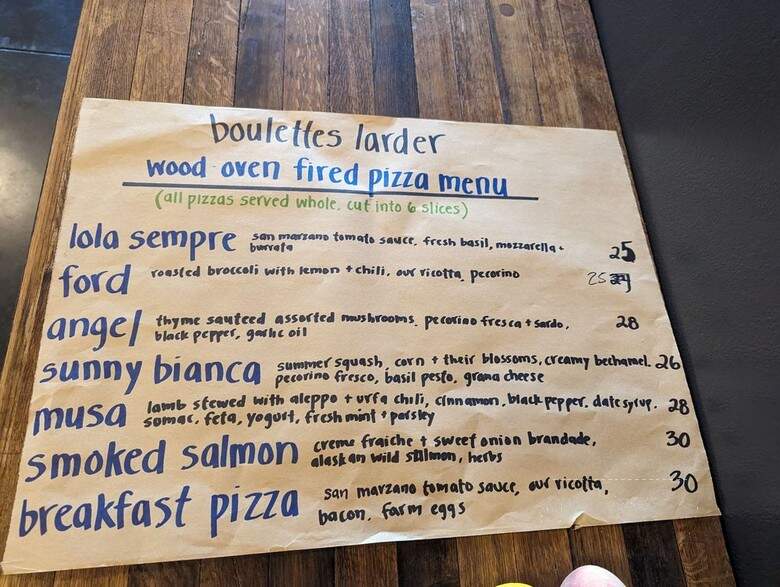 boulettes larder
wood oven fired pizza menu
(all pizzas served whole, cut into 6 slices)
lola sempre san marzano tomato sauce, fresh basil, mozzarella + 25
burrata
ford roasted broccoli with lemon + chili, our ricotta, pecorino 25
angel thyme sauteed assorted mushrooms, pecorino fresca + sardo, 28
black pepper, garlic oil
sunny bianca summer squash, corn + their blossoms, creamy bechamel. 26
pecorino fresco, basil pesto, grana cheese
musa lamb stewed with aleppo + urfa chili, cinnamon, black pepper, date syrup. 28
sumac, feta, yogurt, fresh mint + parsley
smoked salmon creme fraiche + sweet onion brandade, 30
alaskan wild salmon, herbs
breakfast pizza san marzano tomato sauce, our ricotta, 30
bacon, farm eggs